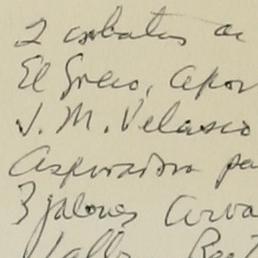 2 corbatas de
El Greco, apor
J. M. Velasco
Aspiradora pa
3 jalones Cerva